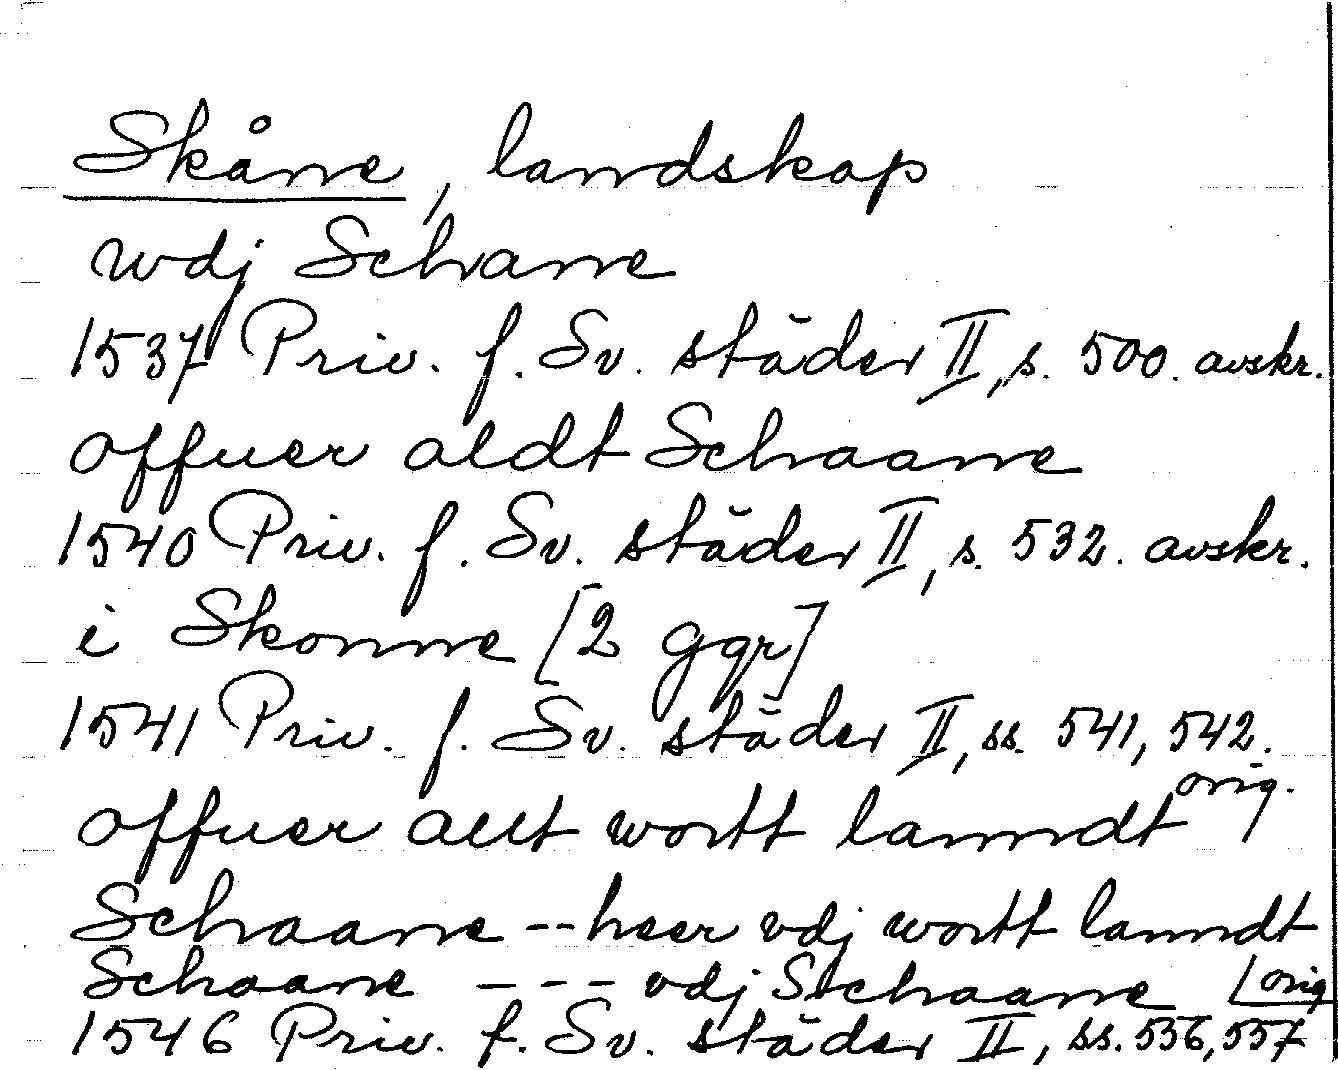 Skåne, landskap
wdj Schane
1537 Priv. f. Sv. städer II, s. 500. avskr.
offuer aldt Schaane
1540 Priv. f. Sv. städer II, s. 532. avskr.
i Skonne [2 ggr]
1541 Priv. f. Sv. städer II, ss. 541, 542.
orig.
offuer allt wortt lanndt
Schaane -- heer vdj wortt lanndt
Schaane --- vdj Schaane [orig
1546 Priv. f. Sv. städer II, ss. 556, 557